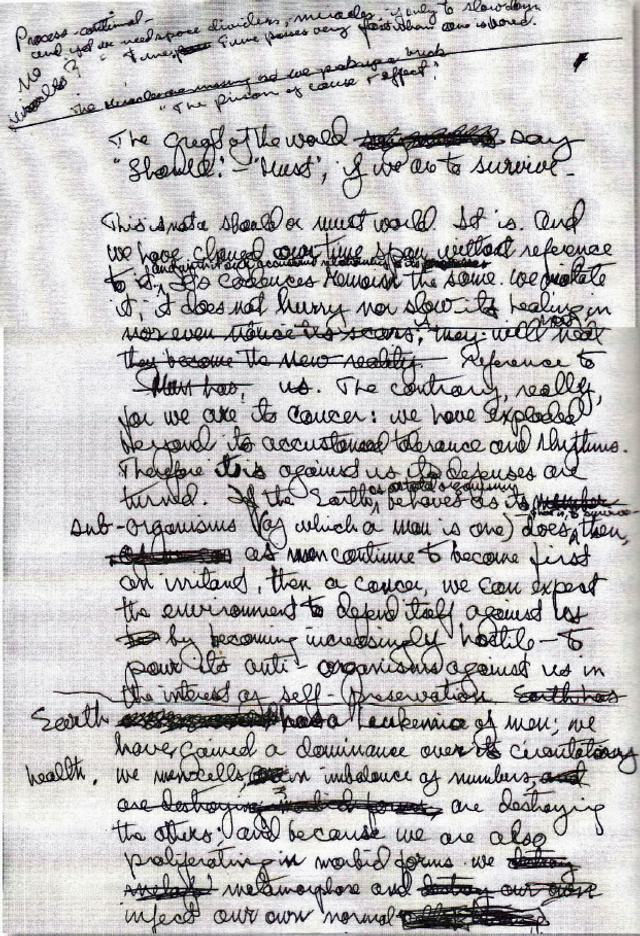 Process-continual-
and yet we need space dividers, miracles, if only to slow down
No " Time passes very fast when one is bored.
miracles?
"The prison of cause & effect"
The Greats of the world say
"Should" - "Must", if we are to survive -
This is not a should or must world. It is. And
we have changed our time span without reference
to it; its cadences remain the same. We mutate
it; it does not hurry nor slow its healing in
nor even notice its scars; they will heal
they become the new reality. Reference to
Man has us. The contrary, really,
for we are its cancer: we have exploded
beyond its accustomed tolerance and rhythms.
Therefore it is against us its defenses are
turned. If the Earth, as a total organism, behaves as its
sub-organisms (of which a man is one) does, then,
as men continue to become first
an irritant, then a cancer, we can expect
the environment to defend itself against us
by becoming increasingly hostile - to
pour its anti-organisms against us in
the interest of self-preservation. Earth has
Earth has a Leukemia of men; we
have gained a dominance over its circulatory
health. we men-cells in imbalance of numbers, and
are destroying are destroying
the others; and because we are also
proliferating in morbid forms we
metamorphose and destroy our own
infect our own normal